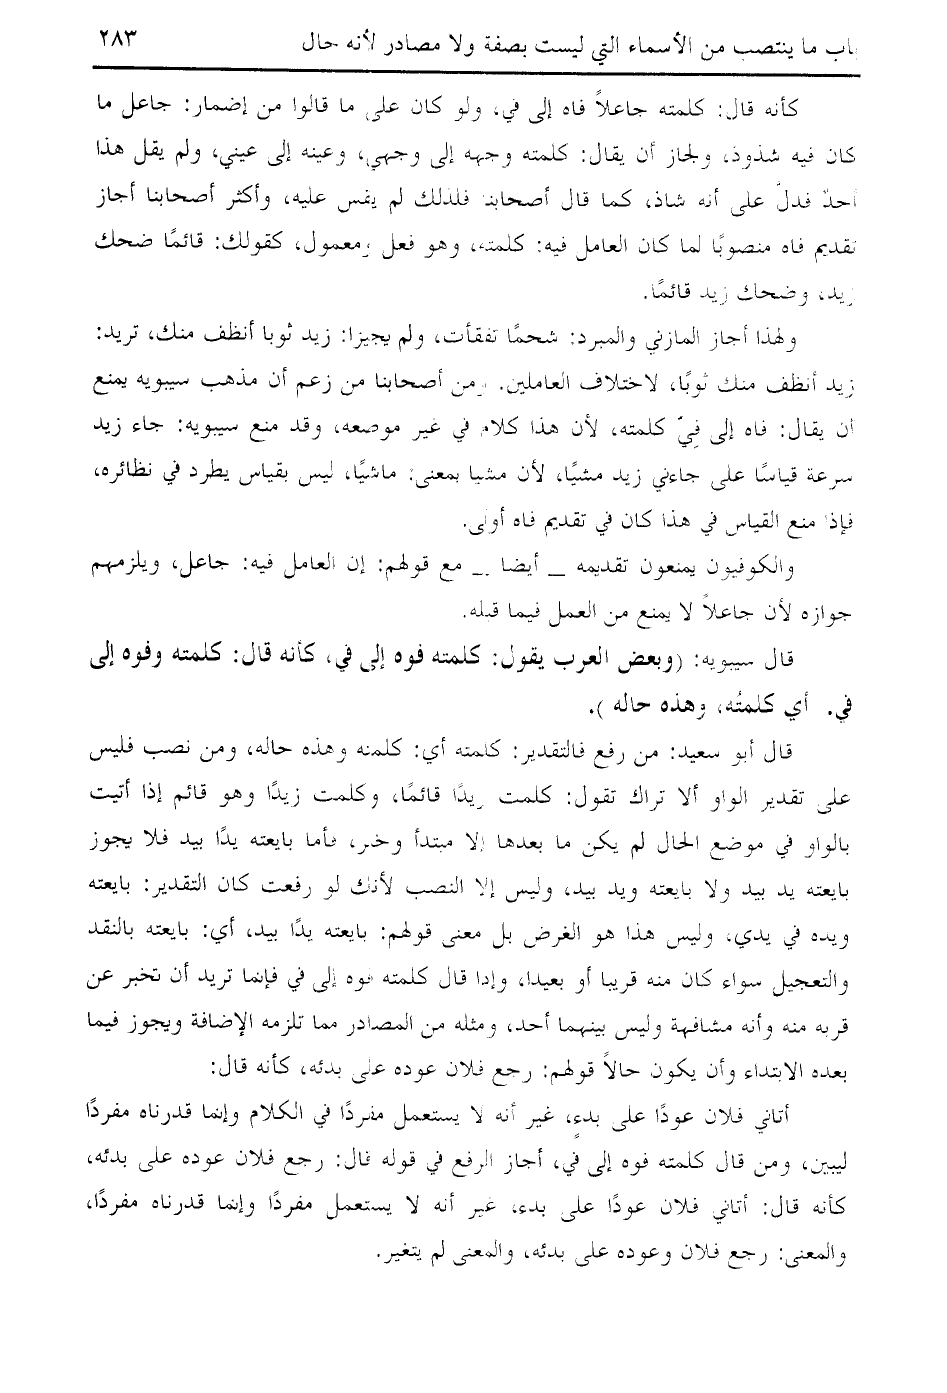 باب ما ينتصب من الأسماء التي ليست بصفة ولا مصادر لأنه حال ٢٨٣
كأنه قال: كلمته جاعلاً فاه إلى في، ولو كان على ما قالوا من إضمار: جاعل ما
كان فيه شذوذ، ولجاز أن يقال: كلمته وجهه إلى وجهي، وعينه إلى عيني، ولم يقل هذا
أحدٌ فدلَّ على أنه شاذ، كما قال أصحابنا فلذلك لم يقس عليه، وأكثر أصحابنا أجاز
تقديم فاه منصوبًا لما كان العامل فيه: كلمته، وهو فعل ومعمول، كقولك: قائمًا ضحك
زيد، وضحك زيد قائمًا.
ولهذا أجاز المازني والمبرد: شحمًا تفقأت، ولم يجيزا: زيد ثوبا أنظف منك، تريد:
زيد أنظف منك ثوبًا، لاختلاف العاملين. ومن أصحابنا من زعم أن مذهب سيبويه يمنع
أن يقال: فاه إلى فِيّ كلمته، لأن هذا كلام في غير موضعه، وقد منع سيبويه: جاء زيد
سرعة قياسًا على جاءني زيد مشيًا، لأن مشيا بمعنى: ماشيًا، ليس بقياس يطرد في نظائره،
فإذا منع القياس في هذا كان في تقديم فاه أولى.
والكوفيون يمنعون تقديمه _ أيضا _ مع قولهم: إن العامل فيه: جاعل، ويلزمهم
جوازه لأن جاعلاً لا يمنع من العمل فيما قبله.
قال سيبويه: (وبعض العرب يقول: كلمته فوه إلى في، كأنه قال: كلمته وفوه إلى
في. أي كلمتُه، وهذه حاله ).
قال أبو سعيد: من رفع فالتقدير: كلمته أي: كلمته وهذه حاله، ومن نصب فليس
على تقدير الواو ألا تراك تقول: كلمت زيدًا قائمًا، وكلمت زيدًا وهو قائم إذا أتيت
بالواو في موضع الحال لم يكن ما بعدها إلا مبتدأ وخبر، فأما بايعته يدًا بيد فلا يجوز
بايعته يد بيد ولا بايعته ويد بيد، وليس إلا النصب لأنك لو رفعت كان التقدير: بايعته
ويده في يدي، وليس هذا هو الغرض بل معنى قولهم: بايعته يدًا بيد، أي: بايعته بالنقد
والتعجيل سواء كان منه قريبا أو بعيدا، وإذا قال كلمته فوه إلى في فإنما تريد أن تخبر عن
قربه منه وأنه مشافهة وليس بينهما أحد، ومثله من المصادر مما تلزمه الإضافة ويجوز فيما
بعده الابتداء وأن يكون حالاً قولهم: رجع فلان عوده على بدئه، كأنه قال:
أتاني فلان عودًا على بدءٍ، غير أنه لا يستعمل مفردًا في الكلام وإنما قدرناه مفردًا
ليبين، ومن قال كلمته فوه إلى في، أجاز الرفع في قوله قال: رجع فلان عوده على بدئه،
كأنه قال: أتاني فلان عودًا على بدء، غير أنه لا يستعمل مفردًا وإنما قدرناه مفردًا،
والمعنى: رجع فلان وعوده على بدئه، والمعنى لم يتغير.